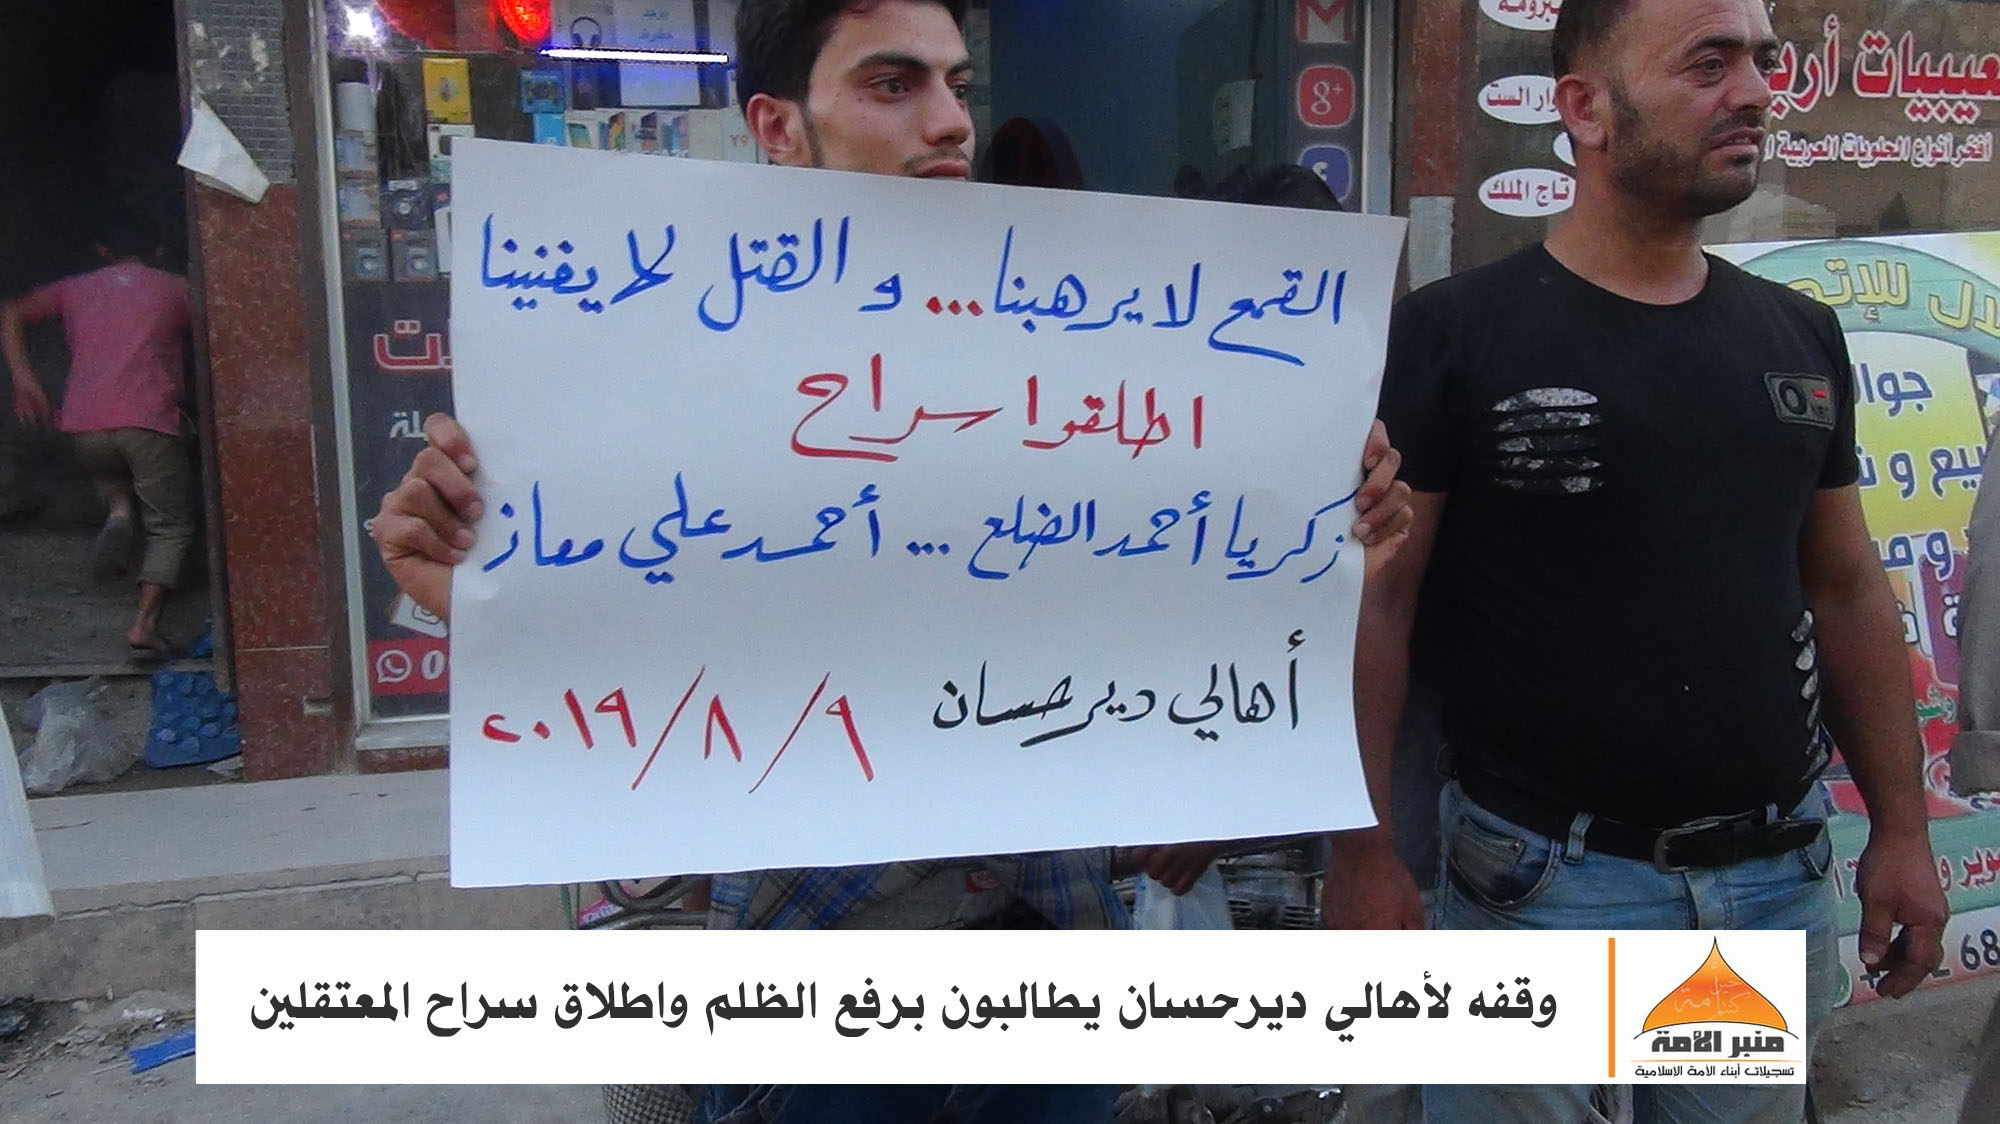 القمع لا يرهبنا... و القتل لا يفنينا
اطلقوا سراح
زكريا أحمد الضلع ... أحمد علي معاز
أهالي ديرحسان ٢٠١٩/٨/٩
وقفه لأهالي ديرحسان يطالبون برفع الظلم واطلاق سراح المعتقلين
منبر الأمة
تسجيلات أبناء الأمة الإسلامية
أفخر أنواع الحلويات العربية
تاج الملك
8+
Y9
68